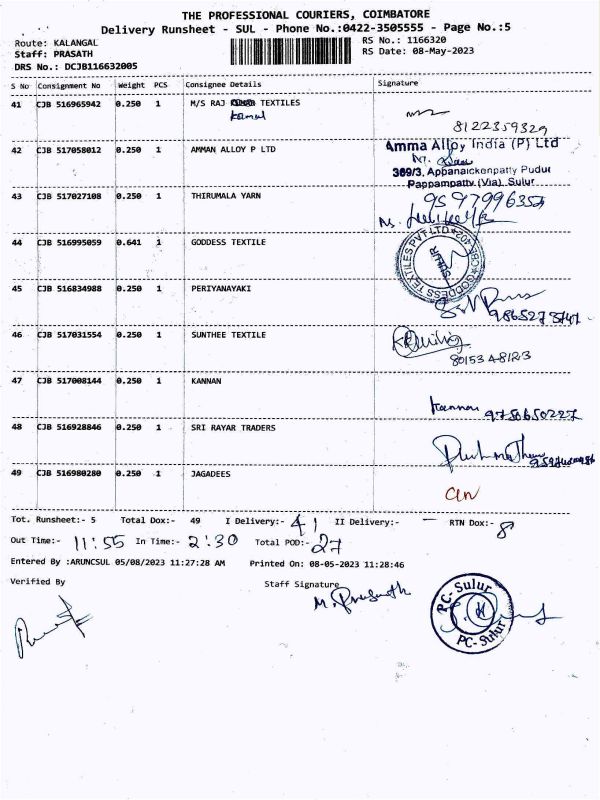 THE PROFESSIONAL COURIERS, COIMBATORE
Delivery Runsheet - SUL - Phone No.:0422-3505555 - Page No.:5
Route: KALANGAL
RS No.: 1166320
Staff: PRASATH
RS Date: 08-May-2023
DRS No.: DCJB116632005
S No Consignment No Weight PCS Consignee Details Signature
41 CJB 516965942 0.250 1 M/S RAJ TEXTILES
Kamal
8122359329
42 CJB 517058012 0.250 1 AMMAN ALLOY P LTD
Amma Alloy India (P) Ltd
369/3, Appanaickenpatty Pudur
Pappampatty (Via) Sulur
43 CJB 517027108 0.250 1 THIRUMALA YARN
44 CJB 516995059 0.641 1 GODDESS TEXTILE
GODDESS TEXTILES PVT LTD
SULUR
45 CJB 516834988 0.250 1 PERIYANAYAKI
46 CJB 517031554 0.250 1 SUNTHEE TEXTILE
80153 48123
47 CJB 517008144 0.250 1 KANNAN
Kannan 9750650227
48 CJB 516928846 0.250 1 SRI RAYAR TRADERS
49 CJB 516980280 0.250 1 JAGADEES
Tot. Runsheet:- 5 Total Dox:- 49 I Delivery:- 41 II Delivery:- — RTN Dox:- 8
Out Time:- 11:55 In Time:- 2:30 Total POD:- 27
Entered By :ARUNCSUL 05/08/2023 11:27:28 AM Printed On: 08-05-2023 11:28:46
Verified By
Staff Signature
M. Prasath
PC- Sulur
PC- Sulur